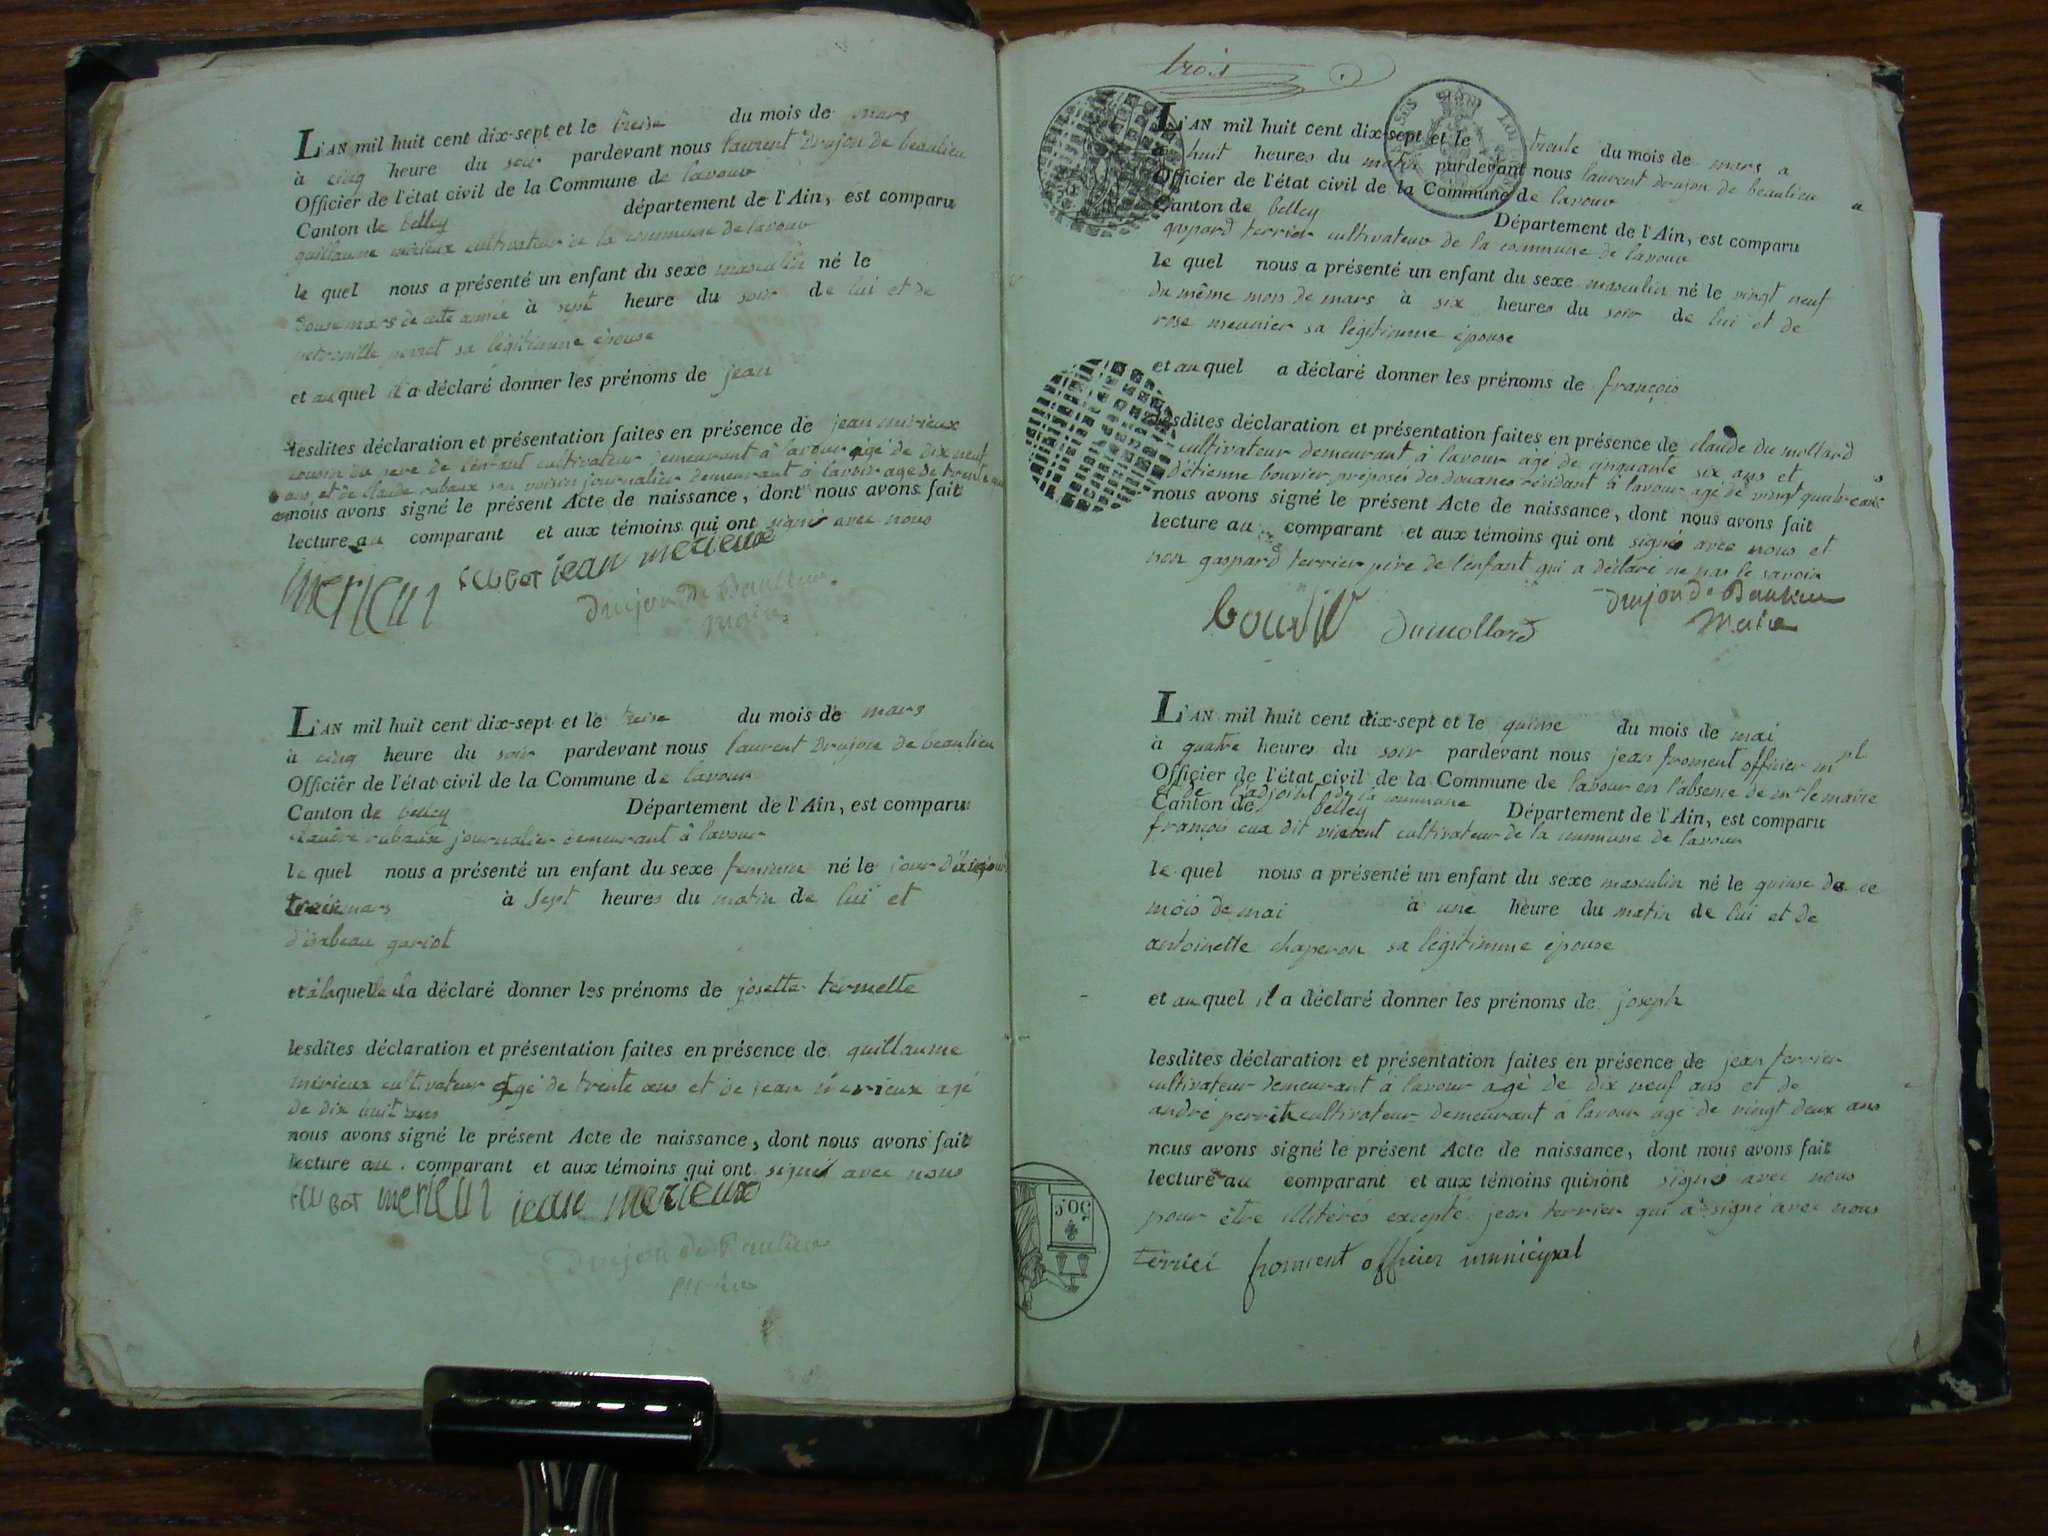 L'AN mil huit cent dix-sept et le treise du mois de mars
à cinq heure du soir pardevant nous laurent drujon de beaulieu
Officier de l'état civil de la Commune de lavour
Canton de belley département de l'Ain, est comparu
guillaume mérieux cultivateur de la commune de lavour
le quel nous a présenté un enfant du sexe masculin né le
douse mars de cette année à sept heure du soir de lui et de
petronille perret sa légitimme épouse
et au quel il a déclaré donner les prénoms de jean
lesdites déclaration et présentation faites en présence de jean mérieux
cousin du pere de l'enfant cultivateur demeurant à lavour agé de dix neuf
ans, et de claude rubaux son voisin journalier demeurant à lavour age de trente
nous avons signé le présent Acte de naissance, dont nous avons fait
lecture au comparant et aux témoins qui ont signés avec nous
merieux jean merieux
Drujon de Baulieu
maire
L'AN mil huit cent dix-sept et le treise du mois de mars
à cinq heure du soir pardevant nous laurent drujon de beaulieu
Officier de l'état civil de la Commune de lavour
Canton de belley Département de l'Ain, est comparu
claude rubaux journalier demeurant à lavour
le quel nous a présenté un enfant du sexe feminin né le jour d'
mars à sept heures du matin de lui et
d'isabeau gariot
et à laquelle il a déclaré donner les prénoms de josette
lesdites déclaration et présentation faites en présence de guillaume
mérieux cultivateur agé de trente ans et de jean mérieux agé
de dix huit ans
nous avons signé le présent Acte de naissance, dont nous avons fait
lecture au comparant et aux témoins qui ont signés avec nous
merieux jean merieux
Drujon de Baulieu
maire
trois
L'AN mil huit cent dix-sept et le trente du mois de mars a
huit heures du matin pardevant nous laurent drujon de beaulieu
Officier de l'état civil de la Commune de lavour
Canton de belley Département de l'Ain, est comparu
gaspard terrier cultivateur de la commune de lavour
le quel nous a présenté un enfant du sexe masculin né le vingt neuf
du même mois de mars à six heures du soir de lui et de
rose meunier sa légitimme épouse
et au quel a déclaré donner les prénoms de françois
lesdites déclaration et présentation faites en présence de claude du mollard
cultivateur demeurant à lavour agé de cinquante six ans et
d'étienne bouvier préposés des douanes résidant à lavour agé de vingt quatre ans
nous avons signé le présent Acte de naissance, dont nous avons fait
lecture au comparant et aux témoins qui ont signés avec nous et
non gaspard terrier père de l'enfant qui a déclaré ne pas le savoir
bouvier Dumollard Drujon de Baulieu
Maire
L'AN mil huit cent dix-sept et le quinse du mois de mai
à quatre heures du soir pardevant nous jean froment officier mpl
Officier de l'état civil de la Commune de lavour en l'absence de mr le maire
et de l'adjoint de la commune
Canton de belley Département de l'Ain, est comparu
françois cua dit vincent cultivateur de la commune de lavour
le quel nous a présenté un enfant du sexe masculin né le quinse de ce
mois de mai à une heure du matin de lui et de
antoinette chaperon sa légitimme épouse
et au quel il a déclaré donner les prénoms de joseph
lesdites déclaration et présentation faites en présence de jean terrier
cultivateur demeurant à lavour agé de dix neuf ans et de
andré cultivateur demeurant à lavour agé de vingt deux ans
nous avons signé le présent Acte de naissance, dont nous avons fait
lecture au comparant et aux témoins qui ont signés avec nous
pour être illitérés excepté jean terrier qui a signé avec nous
terrier froment officier municipal
50C